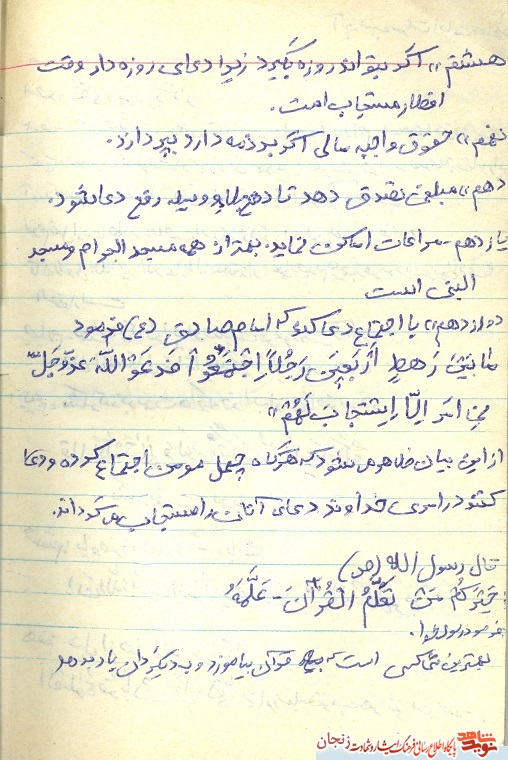 هشتم» اگر بتواند روزه بگیرد زیرا دعای روزه دار وقت
افطار مستجاب است.
نهم» حقوق واجبه مالی اگر بر ذمه دارد بپردازد.
دهم» مبلغی تصدق دهد تا دفع بلا و وسیله رفع دعا شود.
یازدهم - مراعات اماکن نماید. بهتر از همه مسجد الحرام و مسجد
النبی است
دوازدهم» با اجتماع دعا کند که امام صادق (ع) فرمود
ما مِنْ رَهطٍ أَرْبَعِینَ رَجُلاً اِجْتَمَعُوْا فَدَعَوْا اللّهَ عَزَّوَجَلَّ
فی امرٍ اِلّا اِسْتَجابَ لَهُمْ»
از این بیان ظاهر می شود که هرگاه چهل مومن اجتماع کرده و دعا
کنند در امری خداوند دعای آنان را مستجاب می گرداند.
قال رسول الله (ص)
خَیْرُکُمْ مَنْ تَعَلَّمُ الْقُرْآنَ - عَلَّمَهُ
فرمود رسول خدا.
بهترین شما کسی است که قرآن بیاموزد و به دیگران یاد بدهد
نوید شاهد پایگاه اطلاع رسانی فرهنگ ایثار و شهادت زنجان